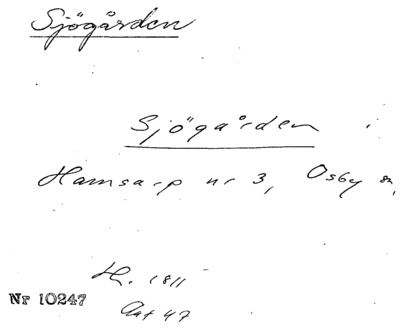 Sjögården
Sjögården i
Hamsarp nr 3, Osby sn,
H. 1811
Nr 10247
Akt 47